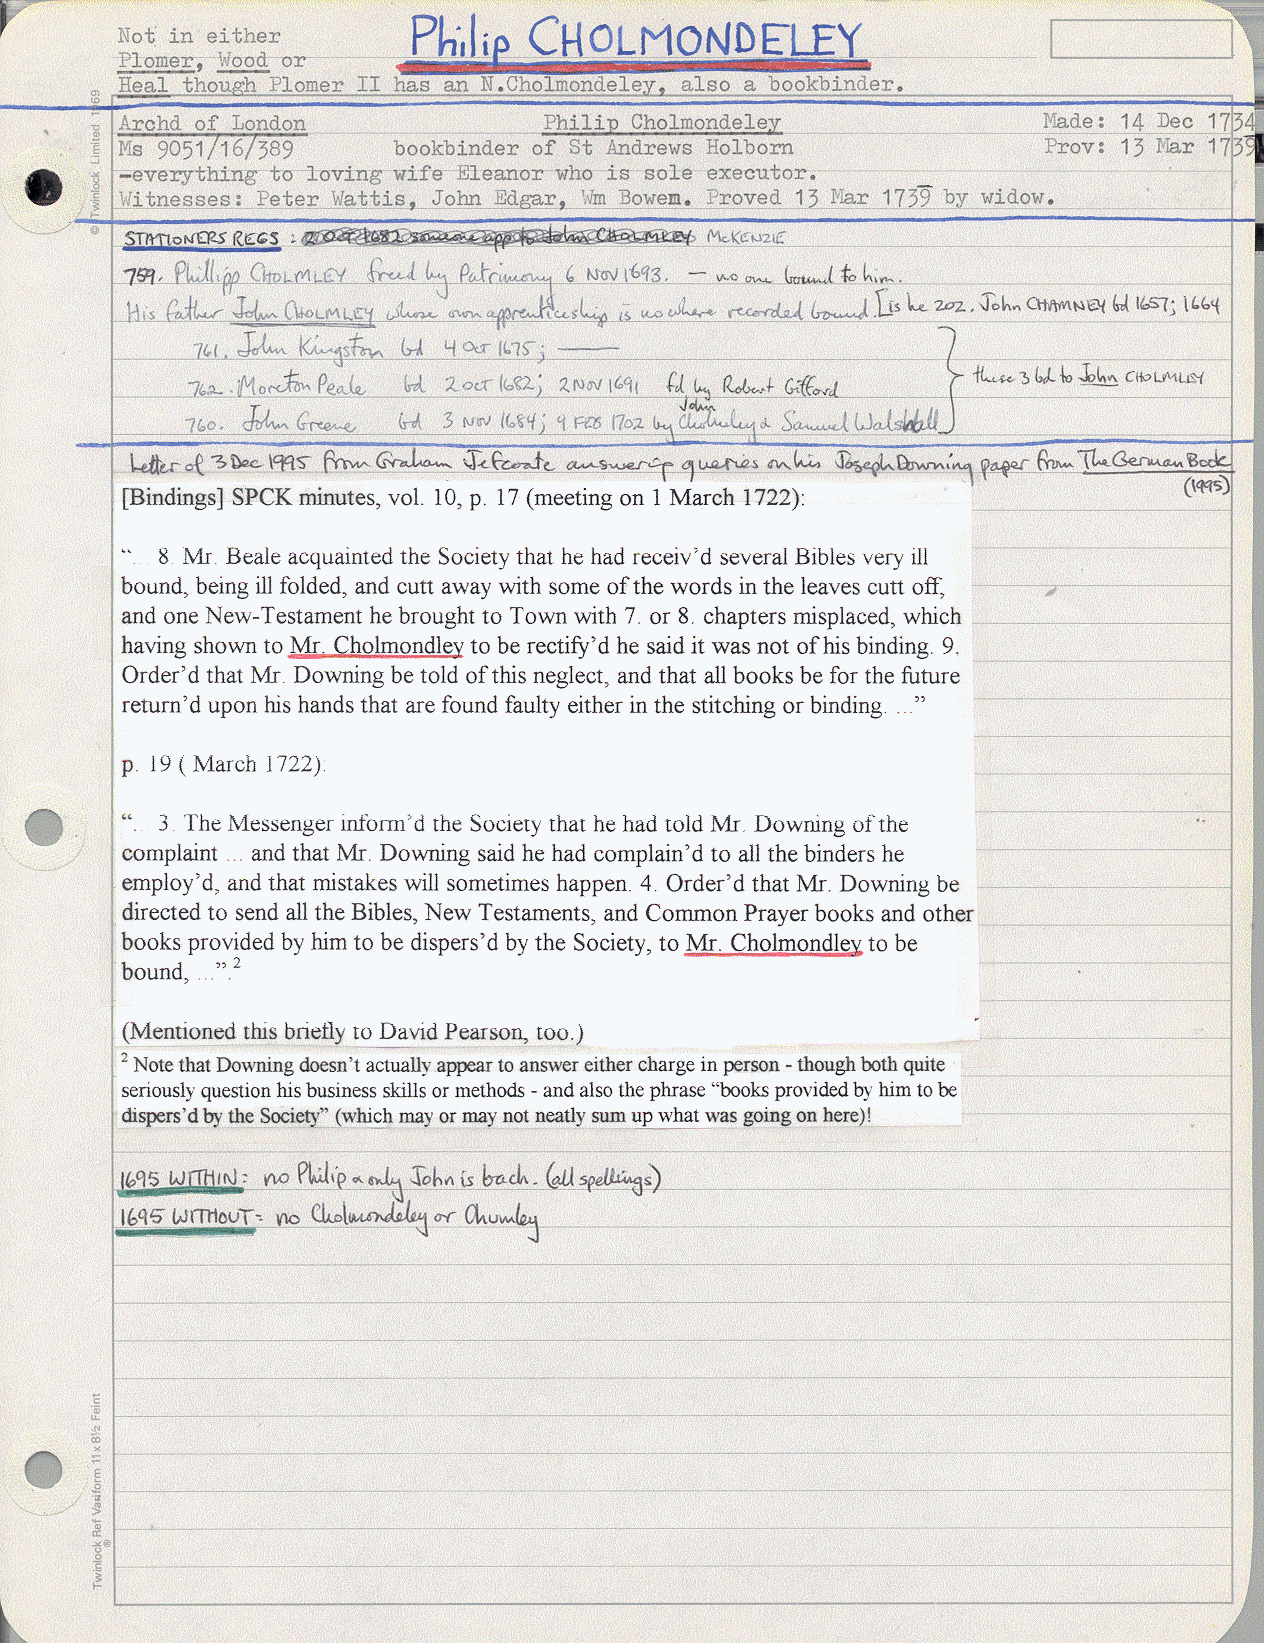 Philip CHOLMONDELEY
Not in either
Plomer, Wood or
Heal though Plomer II has an N.Cholmondeley, also a bookbinder.
Archd of London Philip Cholmondeley Made: 14 Dec 1734
Ms 9051/16/389 bookbinder of St Andrews Holborn Prov: 13 Mar 1739
-everything to loving wife Eleanor who is sole executor.
Witnesses: Peter Wattis, John Edgar, Wm Bowen. Proved 13 Mar 1739 by widow.
STATIONERS REGS : 2 Oct 1682 someone app to John CHOLMLEY McKENZIE
759. Phillipp CHOLMLEY freed by Patrimony 6 NOV 1693. — no one bound to him.
His father John CHOLMLEY whose own apprenticeship is nowhere recorded bound. [is he 202. John CHAMNEY bd 1657; 1664
761. John Kingston bd 4 Oct 1675; —
762. Moreton Peale bd 2 Oct 1682; 2 NOV 1691 fd by Robert Gifford
these 3 bd to John CHOLMLEY
760. John Greene bd 3 NOV 1684; 9 FEB 1702 by John Cholmley & Samuel Walshall
Letter of 3 Dec 1995 from Graham Jefcoate answering queries on his Joseph Downing paper from The German Book
(1995)
[Bindings] SPCK minutes, vol. 10, p. 17 (meeting on 1 March 1722):
“... 8. Mr. Beale acquainted the Society that he had receiv’d several Bibles very ill
bound, being ill folded, and cutt away with some of the words in the leaves cutt off,
and one New-Testament he brought to Town with 7. or 8. chapters misplaced, which
having shown to Mr. Cholmondley to be rectify’d he said it was not of his binding. 9.
Order’d that Mr. Downing be told of this neglect, and that all books be for the future
return’d upon his hands that are found faulty either in the stitching or binding. ...”
p. 19 ( March 1722):
“... 3. The Messenger inform’d the Society that he had told Mr. Downing of the
complaint ... and that Mr. Downing said he had complain’d to all the binders he
employ’d, and that mistakes will sometimes happen. 4. Order’d that Mr. Downing be
directed to send all the Bibles, New Testaments, and Common Prayer books and other
books provided by him to be dispers’d by the Society, to Mr. Cholmondley to be
bound, ...”.2
(Mentioned this briefly to David Pearson, too.)
2 Note that Downing doesn’t actually appear to answer either charge in person - though both quite
seriously question his business skills or methods - and also the phrase “books provided by him to be
dispers’d by the Society” (which may or may not neatly sum up what was going on here)!
1695 WITHIN: no Philip & only John is bach. (all spellings)
1695 WITHOUT: no Cholmondeley or Chumley
© Twinlock Limited 1969
Twinlock Ref Variform 11 x 8½ Feint
®